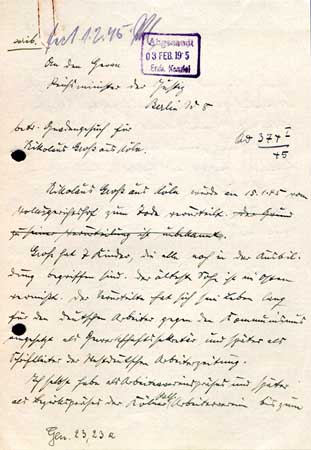 An den Herrn
Reichsminister der Justiz
Berlin W 8
Abgesandt
03 FEB. 195
Erzb.
betr. Gnadengesuch für
Nikolaus Groß aus Köln.
Ad 374 I
45
Nikolaus Groß aus Köln wurde am 15.1.45 vom
Volksgerichtshof zum Tode verurteilt. der Grund
zu seiner Verurteilung ist unbekannt.
Groß hat 7 Kinder, die alle noch in der Ausbil-
dung begriffen sind. der älteste Sohn ist im Osten
vermißt. der Verurteilte hat sich sein Leben lang
für den deutschen Arbeiter gegen den Kommunismus
eingesetzt als Gewerkschaftssekretär und später als
Schriftleiter der Westdeutschen Arbeiterzeitung.
Ich selbst habe als Arbeitervereinspräses und später
als Bezirkspräses der Kölner Arbeitervereine bis zum
Gen. 23, 23 a